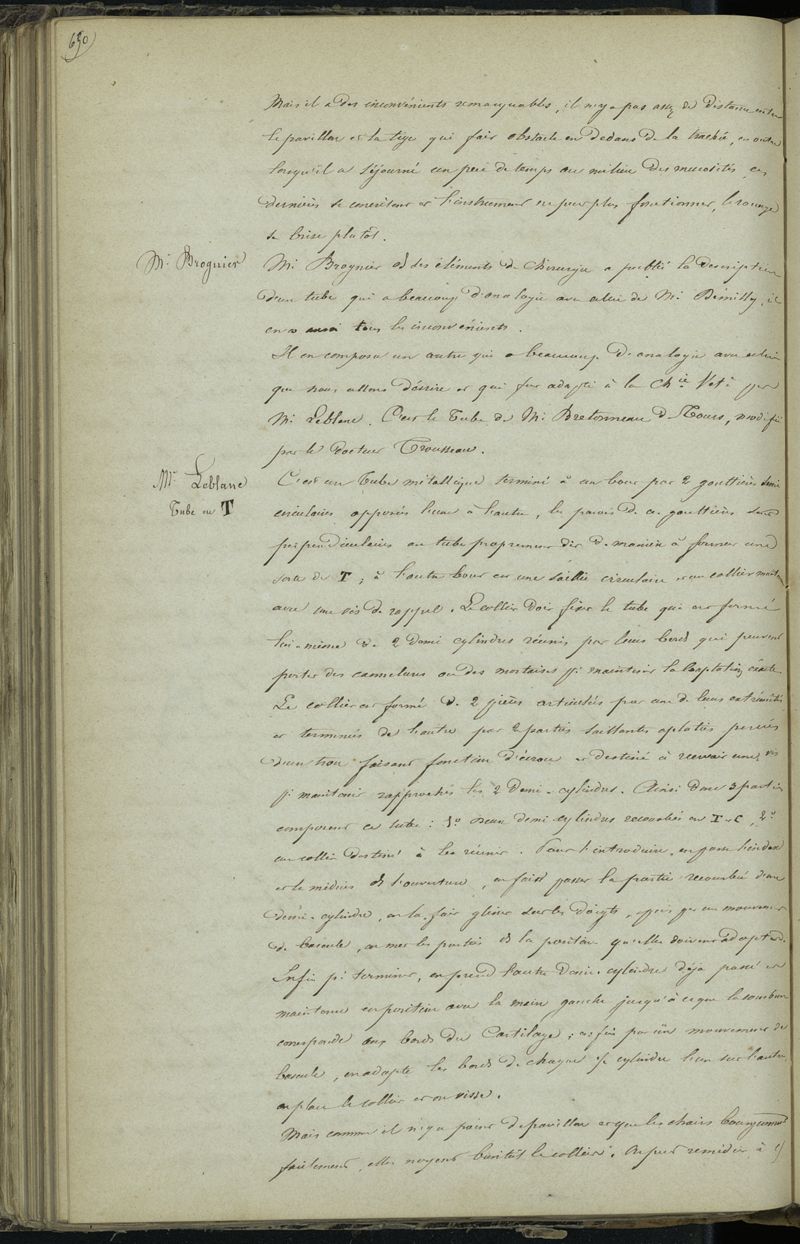 690
Mais il a des inconvénients remarquables, il n'y a pas assez de distance entre
le pavillon et la tige qui fait obstacle en dedans de la trachée, en outre
lorsqu'il a séjourné un peu de temps au milieu des mucosités, ces
dernières se concrètent et l'instrument ne peut plus fonctionner, le rouage
se brise plutôt.
Mr. Brognier
Mr. Brognier ds ses éléments de Chirurgie a publié la description
d'un tube qui a beaucoup d'analogie avec celui de Mr. Dimilly, il
en a aussi tous les inconvénients.
Il en composa un autre qui a beaucoup d'analogie avec celui
que nous allons décrire et qui fut adapté à la Chie Vétre par
Mr. Leblanc. C'est le Tube de Mr. Bretonneau de Tours, modifié
par le docteur Trousseau.
Mr. Leblanc
Tube en T
C'est un Tube métallique terminé à un bout par 2 gouttières demi
circulaires opposées l'une à l'autre, les parois de ces gouttières sont
perpendiculaires au tube proprement dit de manière à former une
sorte de T; à l'autre bout est une saillie circulaire et un collier
avec une vis de rappel. Le collier doit fixer le tube qui est formé
lui-même de 2 demi cylindres réunis par leurs bords qui peuvent
porter des cannelures ou des mortaises pr maintenir la
Le collier est formé de 2 pièces articulées par une de leurs extrémités
et terminées de l'autre par 2 parties saillantes aplaties percées
d'un trou faisant fonction d'écrou et destiné à recevoir une vis
pr maintenir rapprochés les 2 demi-cylindres. Ainsi donc 3 parties
composent ce tube: 1o deux demi cylindres recourbés en T-C, 2o
un collier destiné à les réunir. Pour l'introduire, on passe l'index
et le médius ds l'ouverture, on fait passer la partie recourbée d'un
demi-cylindre, on la fait glisser sur les doigts, puis par un mouvement
de bascule, on met les parties ds la position qu'elles doivent adopter.
Enfin pr terminer, on prend l'autre demi-cylindre déjà passé et
maintenu en position avec la main gauche jusqu'à ce que la courbure
corresponde aux bords du Cartilage; enfin par un mouvement de
bascule, on adapte les bords de chaque cylindre l'un sur l'autre,
on place le collier et on visse.
Mais comme il n'y a point de pavillon et que les chairs bourgeonnent
facilement, elles noyent bientôt le collier. On peut remédier à